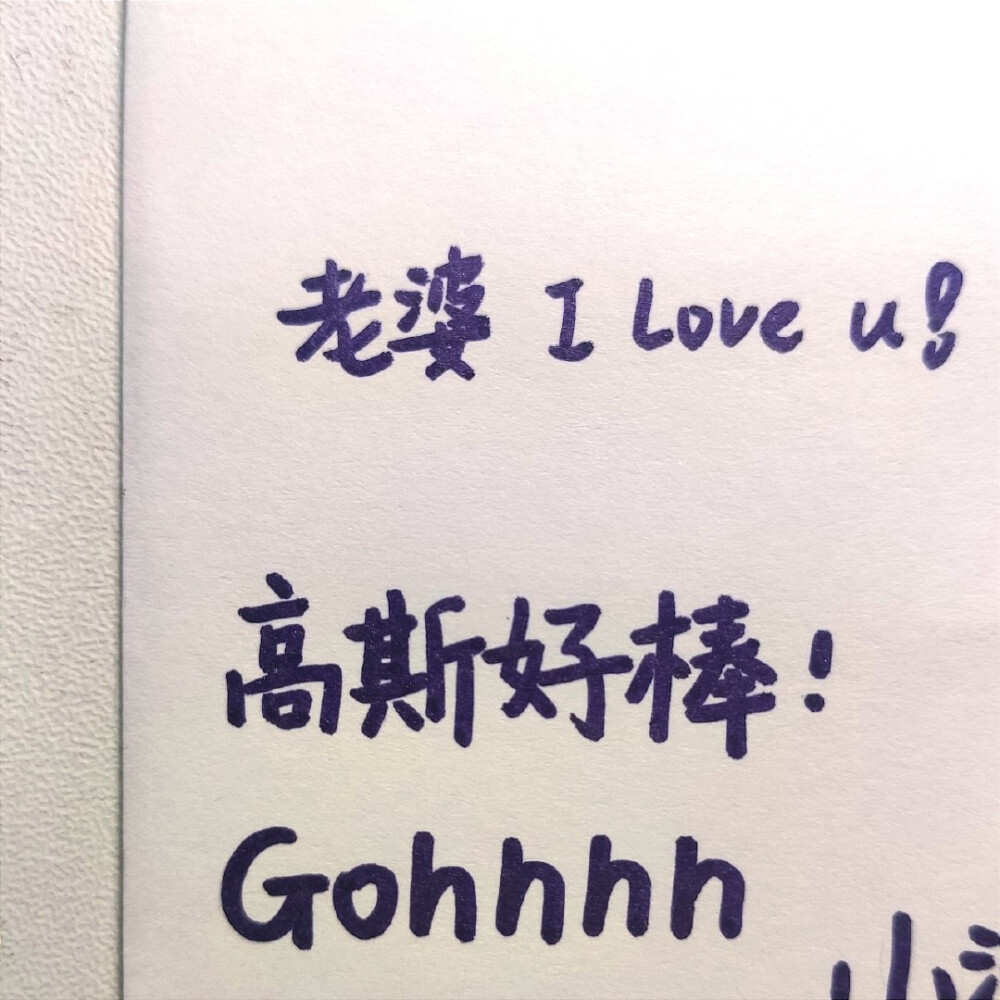 老婆 I love u!
高斯好棒!
Gohhhh